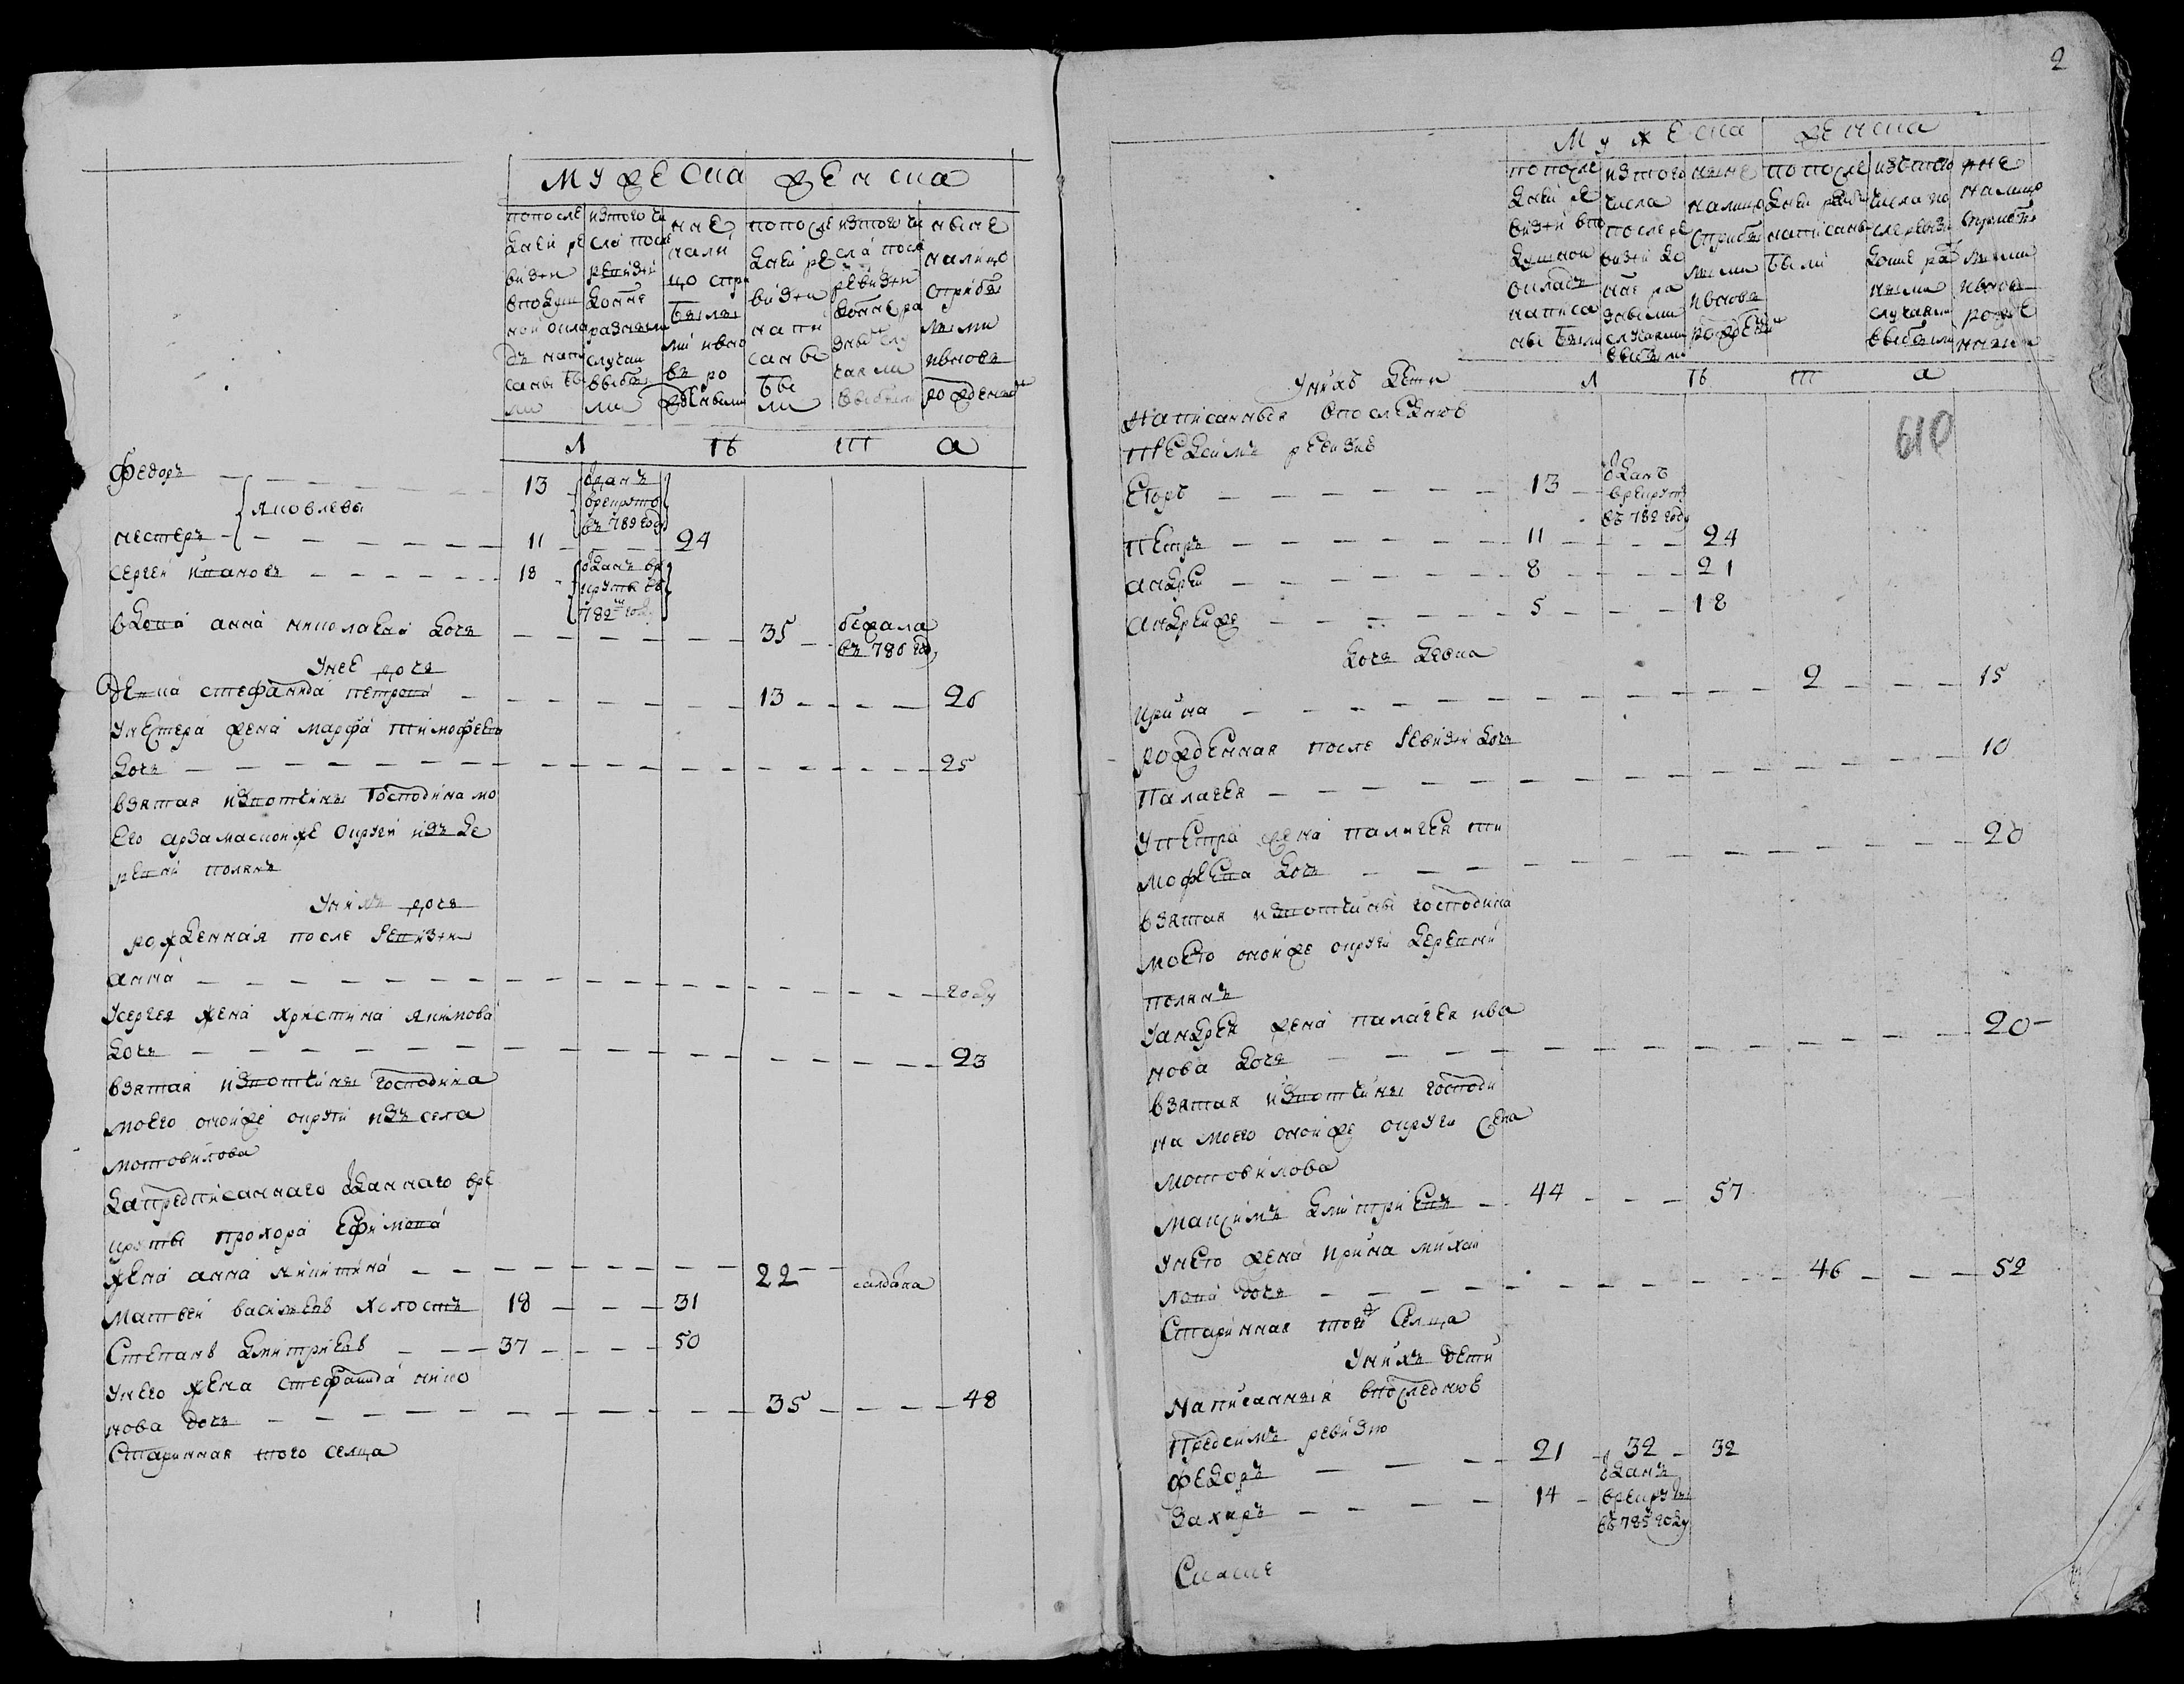 мужеска женска
попосле
дней ре
визии
вподуш
ной окла
дъ напи
саны бы
ли
изтого чи
сла после
ревизии
разными
случаи
выбы
ли
нне
нали
цо спри
былы
ми ивно
въ ро
жденными
попосле
дней ре
визии
напи
саны
бы
ли
изтого чи
сла после
ревизии
разны
слу
чаями
выбыли
ныне
налицо
сприбы
лыми
ивновь
рожденны
л ть ш а
Федоръ 13 отданъ
врекруты
въ 782 году
Яковлевы
нестеръ 11 24
сергей ивановъ 18 отданъ вре
круты въ
782м году
вдова анна николаева дочь 35 бежала
въ 786 году
унее дочь
девка стефанида петрова 13 26
унестера жена марфа тимофеева
дочь 25
взятая извотчины господина мо
его арзамаской же округи изъ де
ревни полянъ
унихъ дочь
рожденная после ревизии
анна году
усергея жена христина якимова
дочь 23
взятая извотчины господина
моего оной же округи изъ села
мотовилова
да предписаннаго отданнаго вре
круты прохора ефимова
жена анна никитина 22 салдатка
матвей васильевъ холостъ 18 31
Степанъ дмитриевъ 37 50
унего жена стефанида нико
нова дочь 35 48
Старинная того селца
2
мужеска женска
попосле
дней ре
визии впо
душной
окладъ
написа
ны были
изтого
числа
после ре
визии
ра
зными
случаями
выбыли
ныне
налицо
сприбы
лыми
ивновь
рожденны
попосле
дней реви
написаны
были
изтого
числа по
сле ревизи
ра
зными
случаями
выбыли
нне
налицо
сприбы
лыми
ивновь
рожде
нными
л ть ш а
Унихъ дети
Написанныя впоследнюю
предсимъ ревизию
610
Егоръ 13 отданъ
врекруты
въ 782 году
Петръ 11 24
андрей 8 21
андрей же 5 18
дочь девка
ирина 2 15
рожденная после ревизии дочь
Палагея 10
упетра жена палагея ти
мофеева дочь 20
взятая извотчины господина
моего оной же округи деревни
полянъ
уандрея жена палагея ива
нова дочь 20
взятая извотчины господи
на моего оной же округи села
мотовилова
Максимъ дмитриевъ 44 57
унего жена ирина михай
лова дочь 46 52
Старинная того селца
Унихъ дети
Написанныя впоследнюю
предсимъ ревизию
Федоръ 21 32 32
Захаръ 14 отданъ
врекруты
въ 785 году